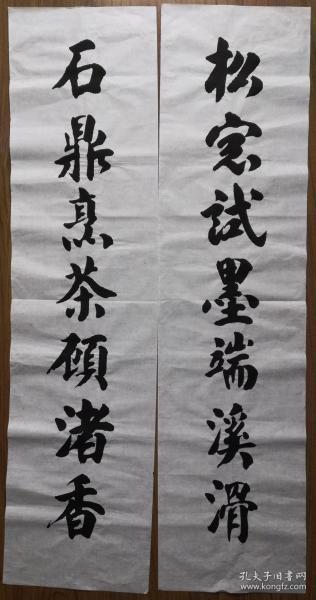 松窓試墨端溪滑
石鼎烹茶顧渚香
孔夫子旧书网
www.kongfz.com